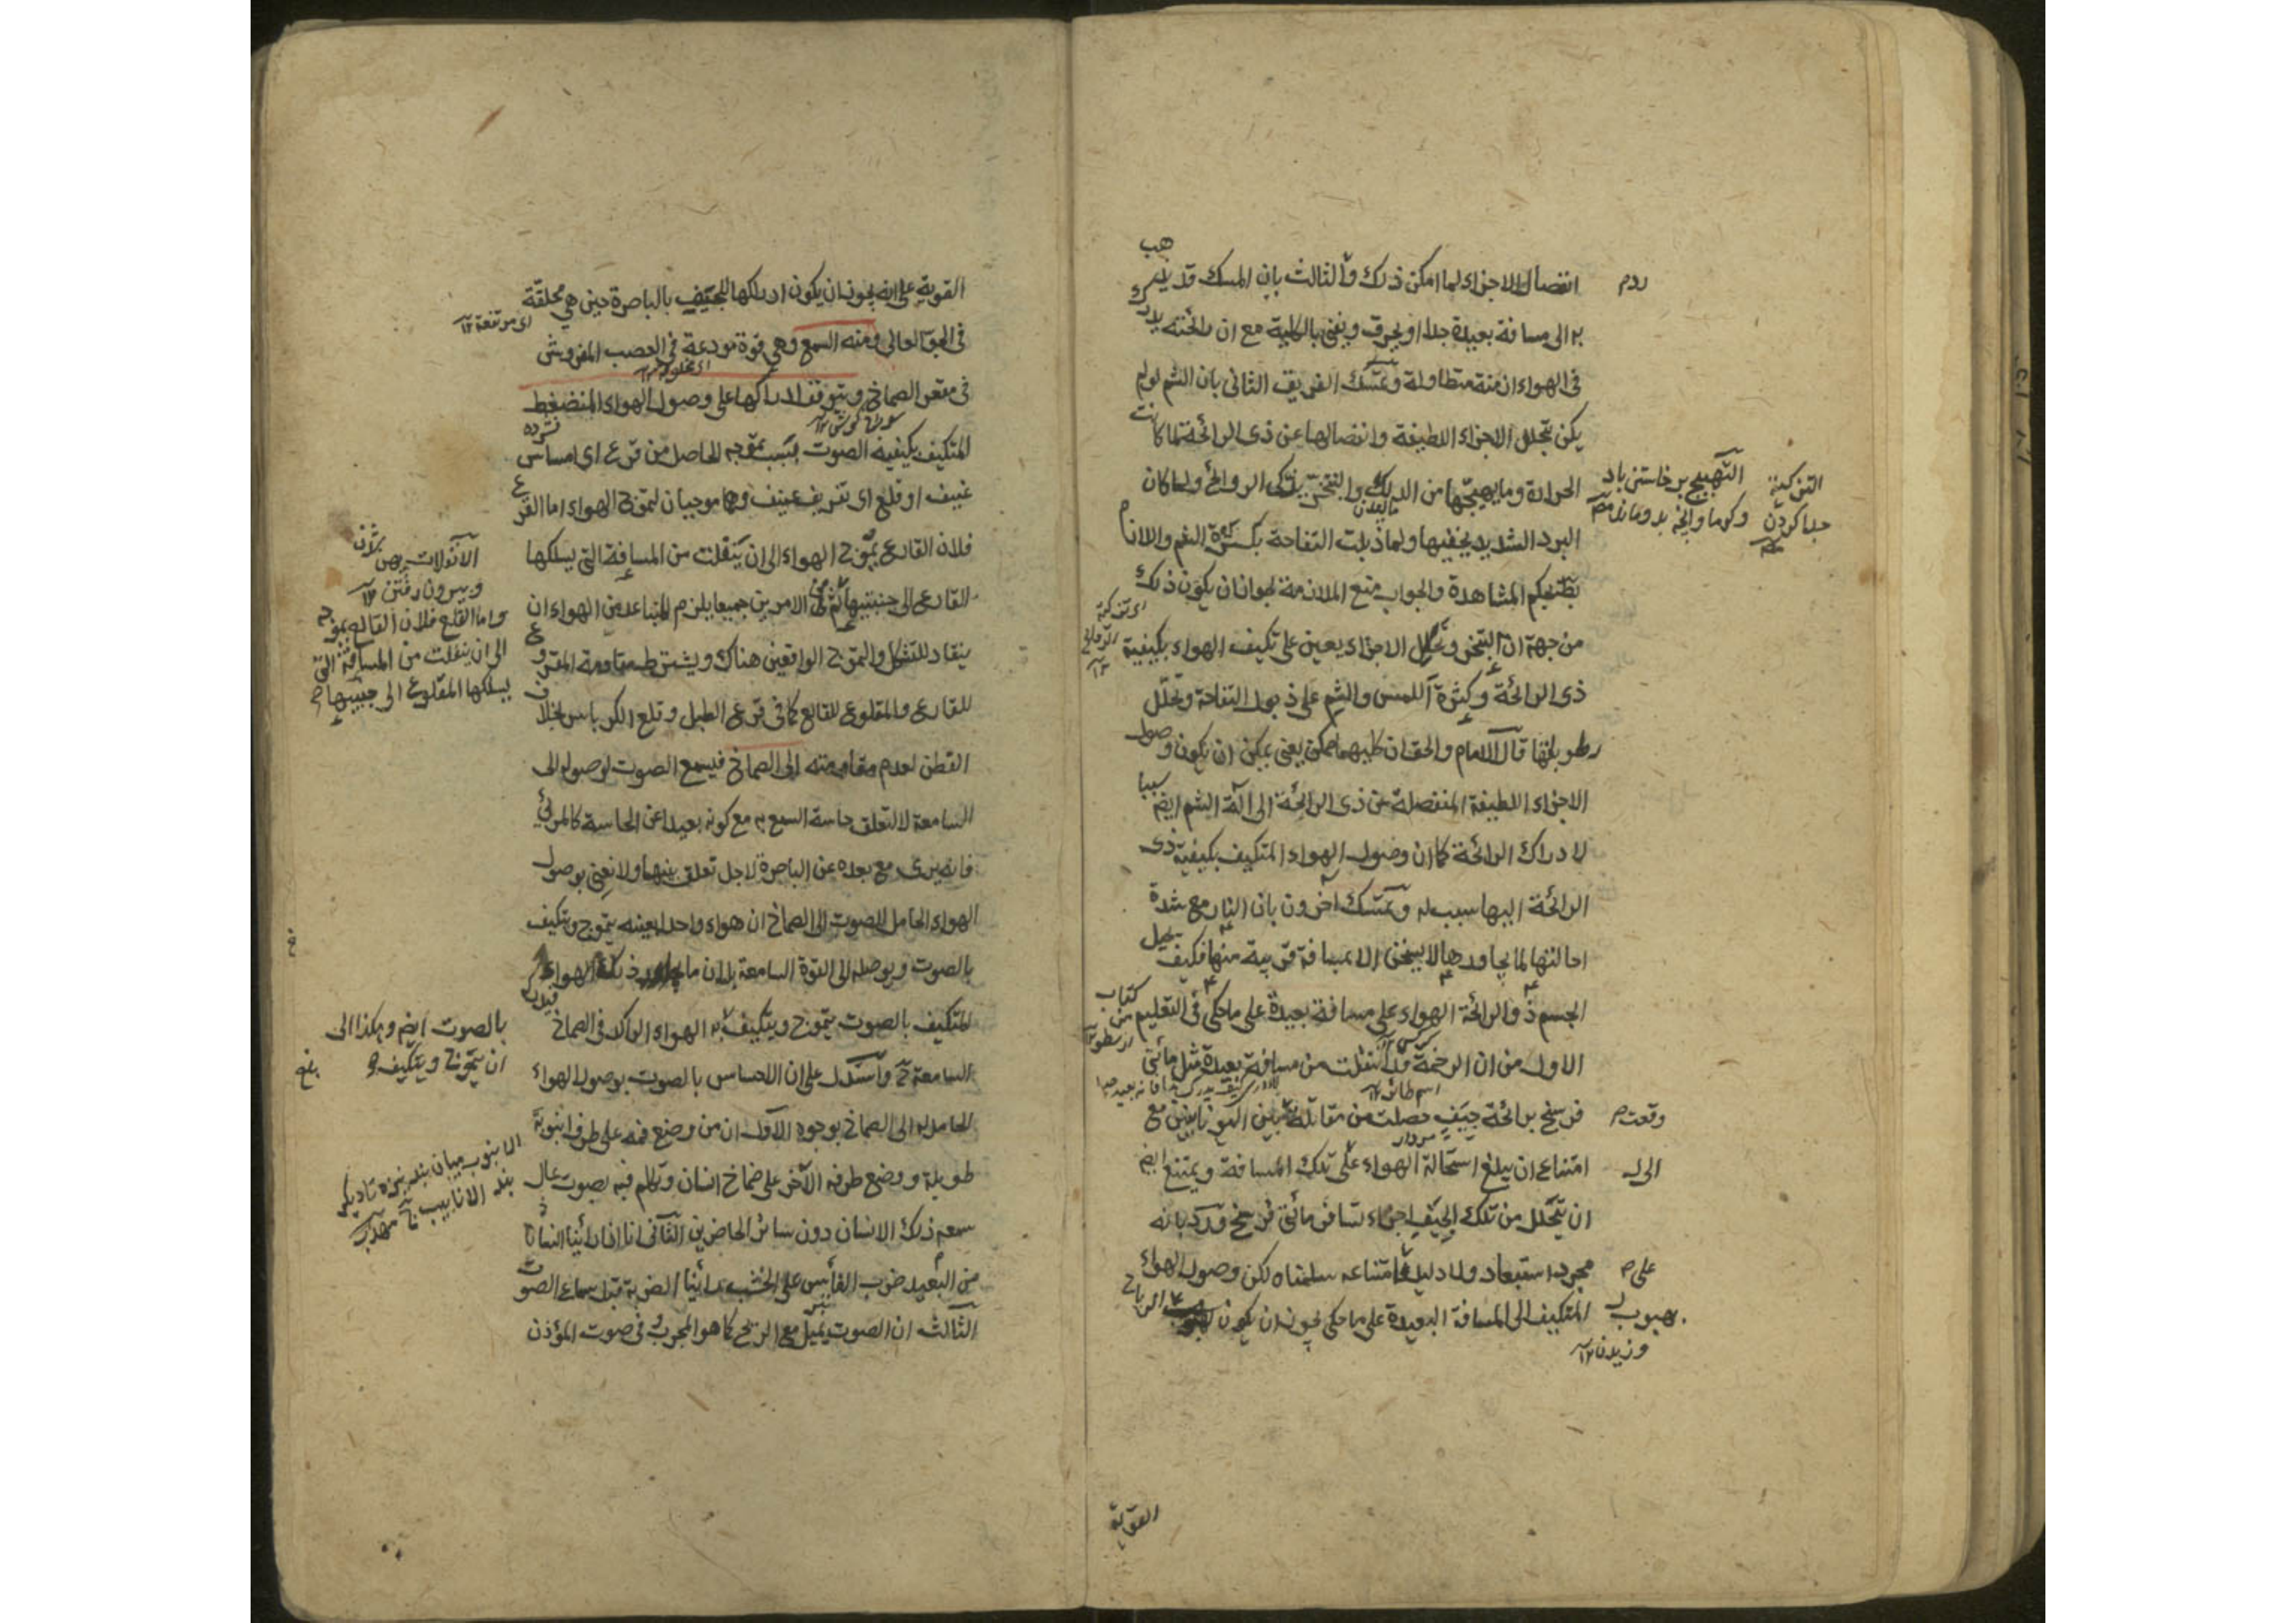 انفصال الاجزاء لما امكن ذلك والثالث بان المسك قد يذهب
به الى مسافة بعيدة جدا او يحرق ويفنى بالكلية مع ان رائحته يدرك
فى الهواء ازمنة متطاولة وتمسك الفريق الثانى بان الشم لو لم
يكن بتحلل الاجزاء اللطيفة وانفصالها عن ذى الرائحة لما كانت
الحرارة وما يهيجها من الدلك والتبخر يذكى الروائح ولما كان
البرد الشديد يخفيها ولما ذبلت التفاحة بكثرة الشم واللازم
بط بحكم المشاهدة والجواب منع الملازمة لجواز ان يكون ذلك
من جهة ان التبخر وتحلل الاجزاء يعين على تكيف الهواء بكيفية
ذى الرائحة وكثرة اللمس والشم على ذبول التفاحة وتحلل
رطوباتها قال الامام والحق ان كليهما ممكن يعنى يمكن ان يكون وصول
الاجزاء اللطيفة المنفصلة من ذى الرائحة الى آلة الشم ايض سببا
لادراك الرائحة كما ان وصول الهواء المتكيف بكيفية ذى
الرائحة اليها سبب له وتمسك آخرون بان النار مع شدة
احالتها لما يجاورها لا يسخن الا مسافة قريبة منها فكيف يحيل
الجسم ذو الرائحة الهواء على مسافة بعيدة على ما حكى فى التعليم
الاول من ان الرخمة قد انتقلت من مسافة بعيدة مثل مأتى
فرسخ برائحة جيف حصلت من مقاتلة بين اليونانيين مع
امتناع ان يبلغ استحالة الهواء على تلك المسافة ويمتنع ايض
ان يتحلل من تلك الجيف اجزاء تسافر مأتى فرسخ ورد بانه
مجرد استبعاد ولا دليل على امتناعه سلمناه لكن وصول الهواء
المتكيف الى المسافة البعيدة على ما حكى يجوز ان يكون لهبوب الرياح
القوية
روم
التهييج برخاستن باد
التذكية
جدا كردن
من كتاب
ارسطو
كركس
اسم طائر
مردار
وقعت م
الى
على م
هبوب
وزيدن ١٢
القوية على انه يجوز ان يكون ادراكها للجيف بالباصرة حين هى محلقة
فى الجو العالى ومنه السمع وهى قوة مودعة فى العصب المفروش
فى مقعر الصماخ ويتوقف ادراكها على وصول الهواء المنضغط
المتكيف بكيفية الصوت بسبب تموجه الحاصل من قرع اى امساس
عنيف او قلع اى تفريق عنيف وهما موجبان لتموج الهواء اما القرع
فلان القارع يموج الهواء الى ان ينفلت من المسافة التى يسلكها
القارع الى جنبتيها ثم فى الامرين جميعا يلزم المتباعد من الهواء ان
ينقاد للتشكل والتموج الواقعين هناك ويشترط مقاومة المقروع
للقارع والمقلوع للقالع كما فى قرع الطبل وقلع الكرباس بخلاف
القطن لعدم مقاومته الى الصماخ فيسمع الصوت لوصوله الى
السامعة لا لتعلق حاسة السمع به مع كونه بعيدا عن الحاسة كالمرئى
فانه يرى مع بعده عن الباصرة لاجل تعلق بينهما ولا نعنى بوصول
الهواء الحامل للصوت الى الصماخ ان هواء واحدا بعينه يتموج ويتكيف
بالصوت ويوصله الى القوة السامعة بل ان ما يجاور ذلك الهواء
المتكيف بالصوت يتموج ويتكيف به الهواء الراكد فى الصماخ
السامعة ح واستدل على ان الاحساس بالصوت بوصول الهواء
الحامل له الى الصماخ بوجوه الاول ان من وضع فمه على طرف انبوبة
طويلة ووضع طرفه الآخر على ضماخ انسان وتكلم فيه بصوت عال
سمعه ذلك الانسان دون سائر الحاضرين الثانى انا اذا رأينا انسانا
من البعيد ضرب الفأس على الخشب رأينا الضربة قبل سماع الصوت
الثالث ان الصوت يميل مع الريح كما هو المجرب فى صوت المؤذن
اى مرتفعة ١٢
سوراخ كوش ١٢
وبيرون رفتن ١٢
واما القلع فلان القالع يموجه
الى ان ينفلت من المسافة التى
يسلكها المقلوع الى جنبيها
بالصوت ايض وهكذا الى
ان يتموج ويتكيف